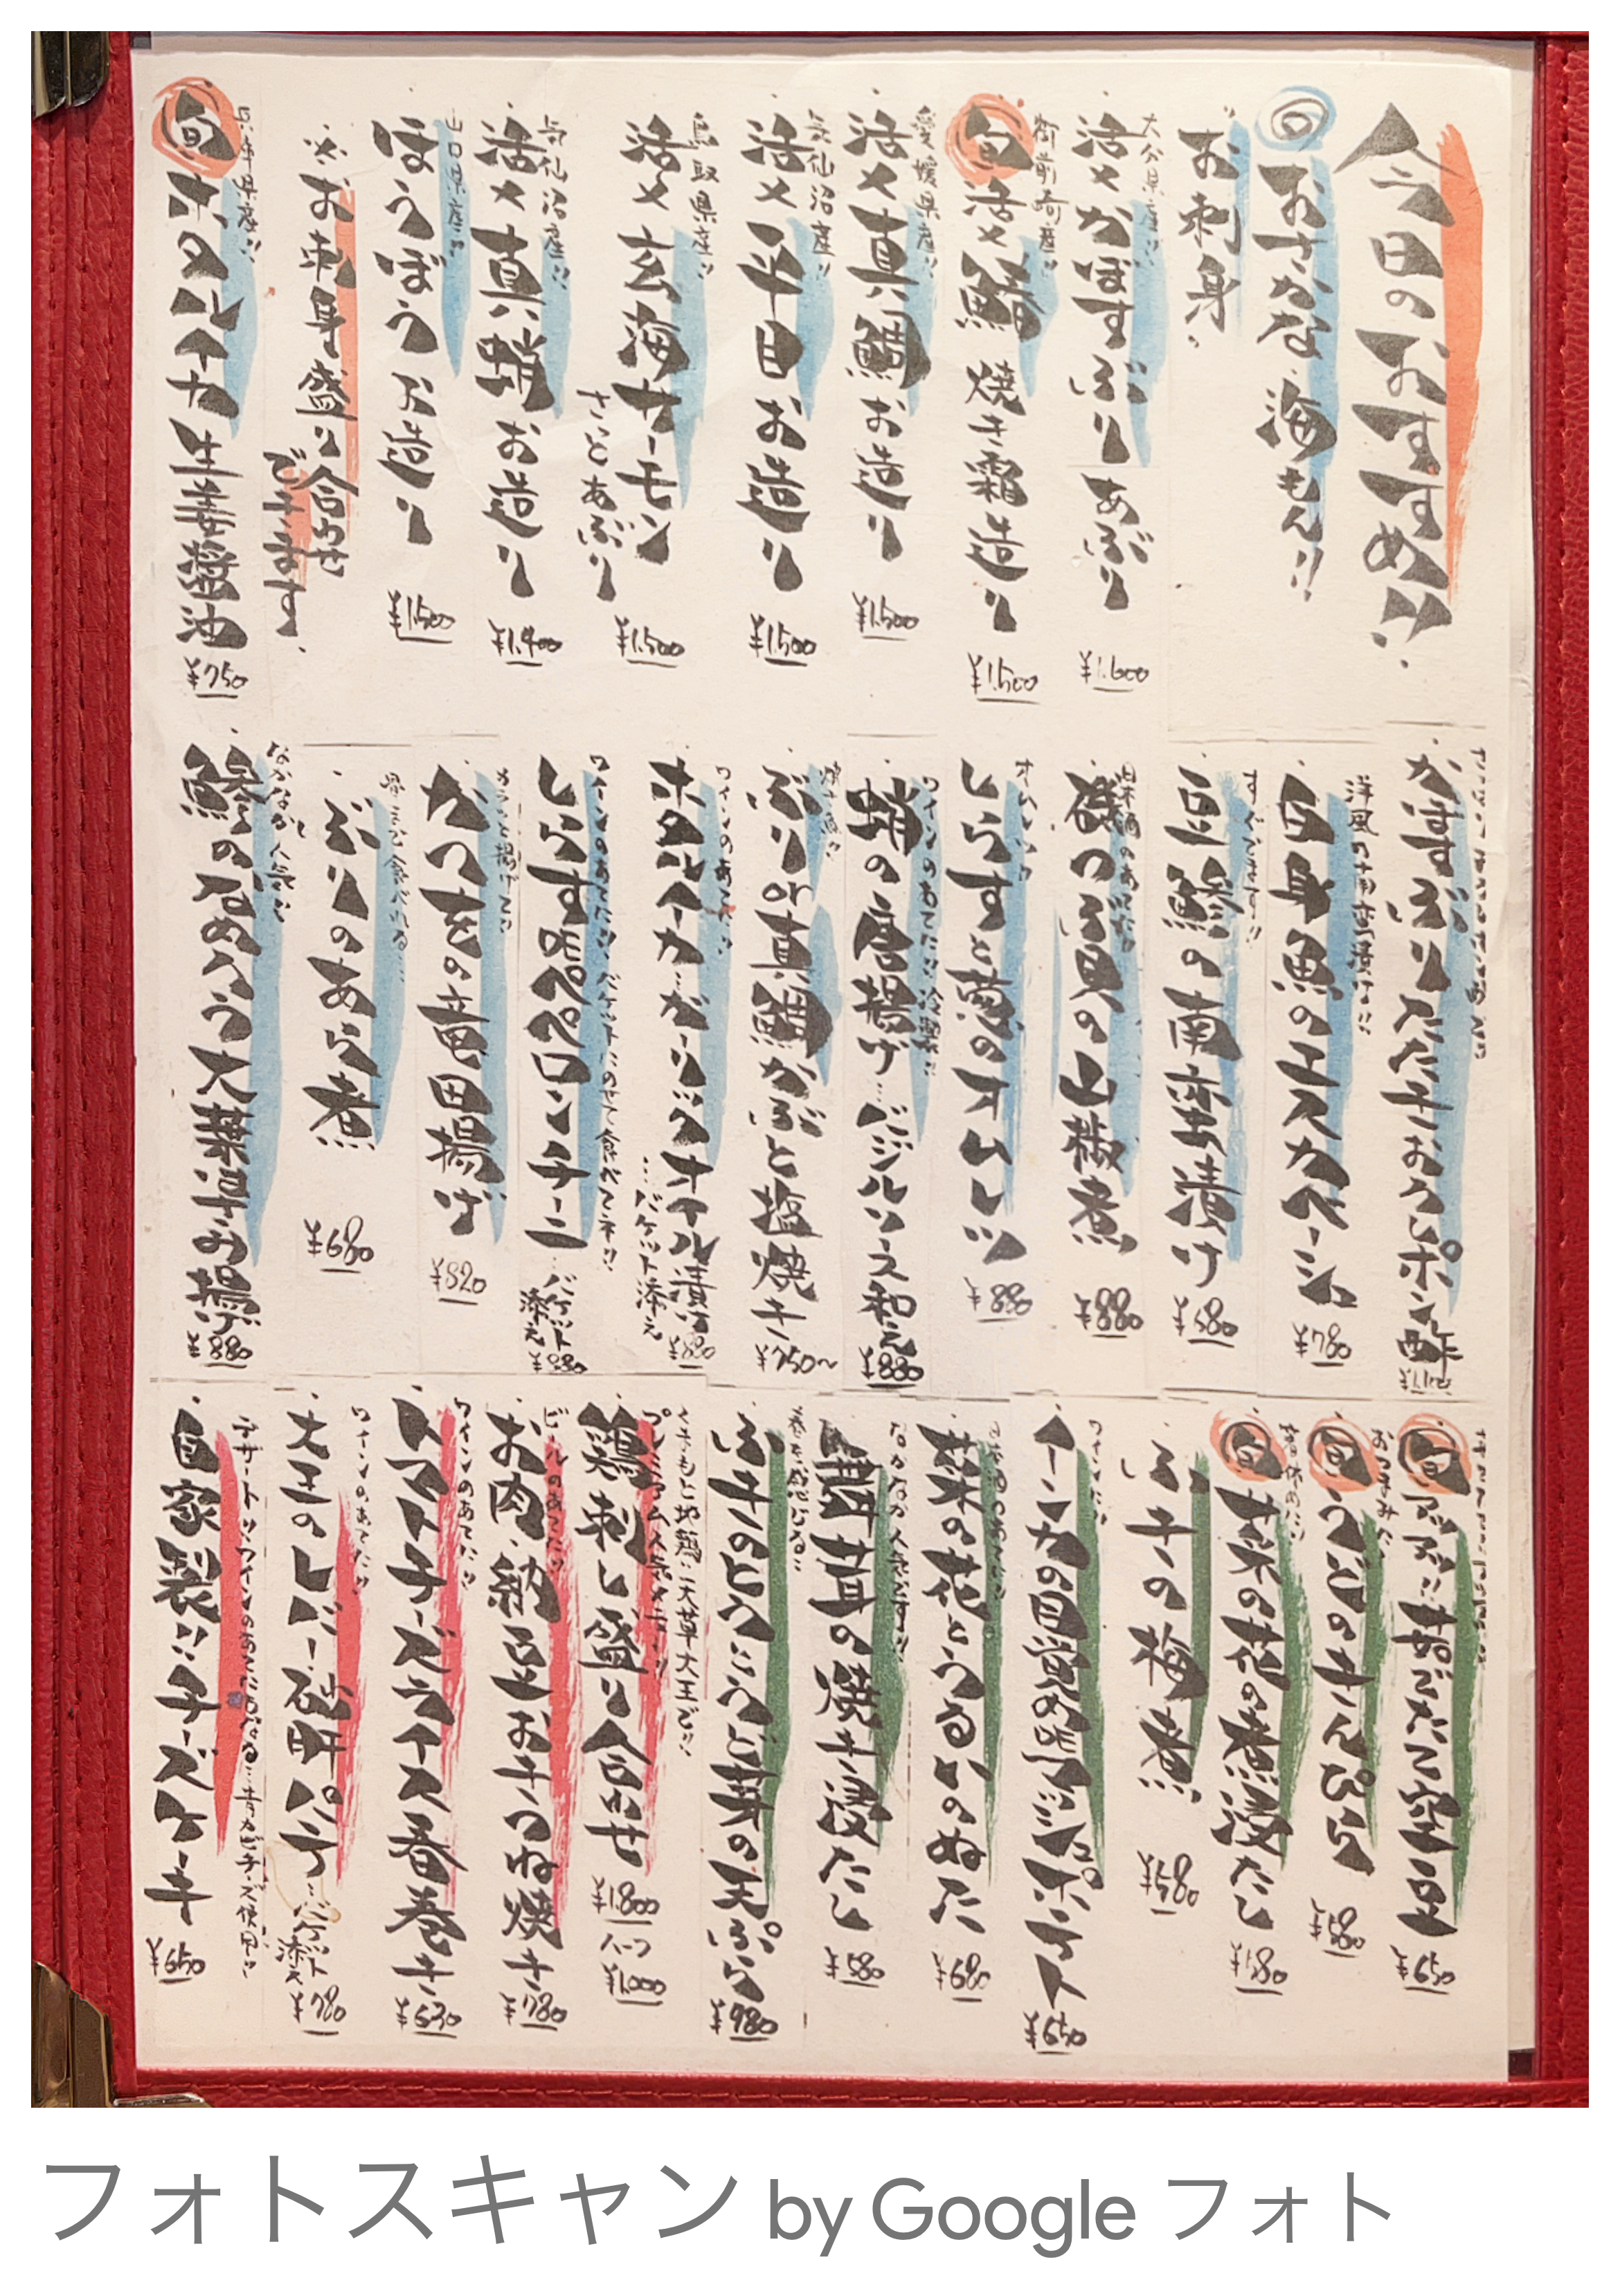 今日のおすすめ!!
旬おさかな 海もん!!
お刺身
大分県産!!
活〆かぼすぶり あぶり
¥1.600
御前崎産!!
旬 活〆鰆 焼き霜造り
¥1.500
愛媛県産!!
活〆真鯛お造り
¥1.500
気仙沼産!!
活〆平目お造り
¥1.500
鳥取県産!!
活〆玄海サーモン
さっとあぶり
¥1.500
気仙沼産!!
活〆真蛸お造り
¥1.400
山口県産!!
ほうぼうお造り
¥1.500
※お刺身盛り合わせ
できます。
兵庫県産!!
旬 ホタルイカ 生姜醤油
¥750
かぼすぶりたたき おろしポン酢
洋風の南蛮漬け!!
白身魚のエスカベーシュ
¥780
すぐできます!!
豆鯵の南蛮漬け
¥580
日本酒のあてに!!
磯つぶ貝の山椒煮
¥880
しらすと葱のオムレツ
¥880
ワインのあてに!!冷製!!
蛸の唐揚げ バジルソース和え
¥880
焼き魚!!
ぶりor真鯛かぶと塩焼き
¥750〜
ワインのあてに!!
ホタルイカ ガーリックオイル漬け
…バケット添え
¥880
ワインのあてに!!バケットにのせて食べてネ!!
しらすペペロンチーニ
バケット添え
¥880
カラッと揚げて!!
がつをの竜田揚げ
¥820
ぶりのあら煮
¥680
なかなか人気!!
鯵のなめろう大葉挟み揚げ
¥880
旬 焼き空豆
¥650
おつまみに!!
旬 うどのきんぴら
¥580
旬 菜の花の煮浸たし
¥580
ふきの梅煮
¥580
ワインに!!
イーンカの目覚 ポテト
¥650
日本酒のあてに!!
菜の花とうるいのぬた
¥680
なかなか人気です!!
椎茸の焼き浸たし
¥580
春を感じる!!
ふきのとうとこごみと芽の天ぷら
¥980
くまもと地鶏!!天草大王だ!!
プレミアム人気です!!
鶏刺し盛り合わせ
¥1.800
ハーフ
¥1.000
ビールのあてに!!
お肉・納豆お きつね焼き
¥780
ワインのあてに!!
トマトチーズライス春巻き
¥630
ワインのあてに!!
大王のレバー砂肝パテ
バケット添え
¥780
デザート!!ワインのあてにもなる…青カビチーズ使用!!
自家製!!チーズケーキ
¥650
フォトスキャン by Google フォト